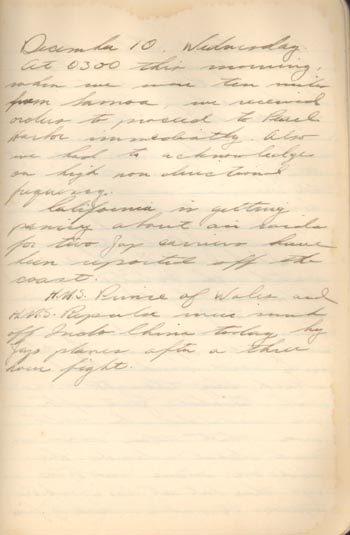 December 10, Wednesday.
At 0300 this morning,
when we were ten miles
from Samoa, we received
orders to proceed to Pearl
Harbor immediately. Also
we had to acknowledge
on high non directional
frequency.
California is getting
panicky about air raids
for two Jap carriers have
been reported off the
coast.
H.M.S. Prince of Wales and
H.M.S. Repulse were sunk
off Indo China today by
Jap planes after a three
hour fight.